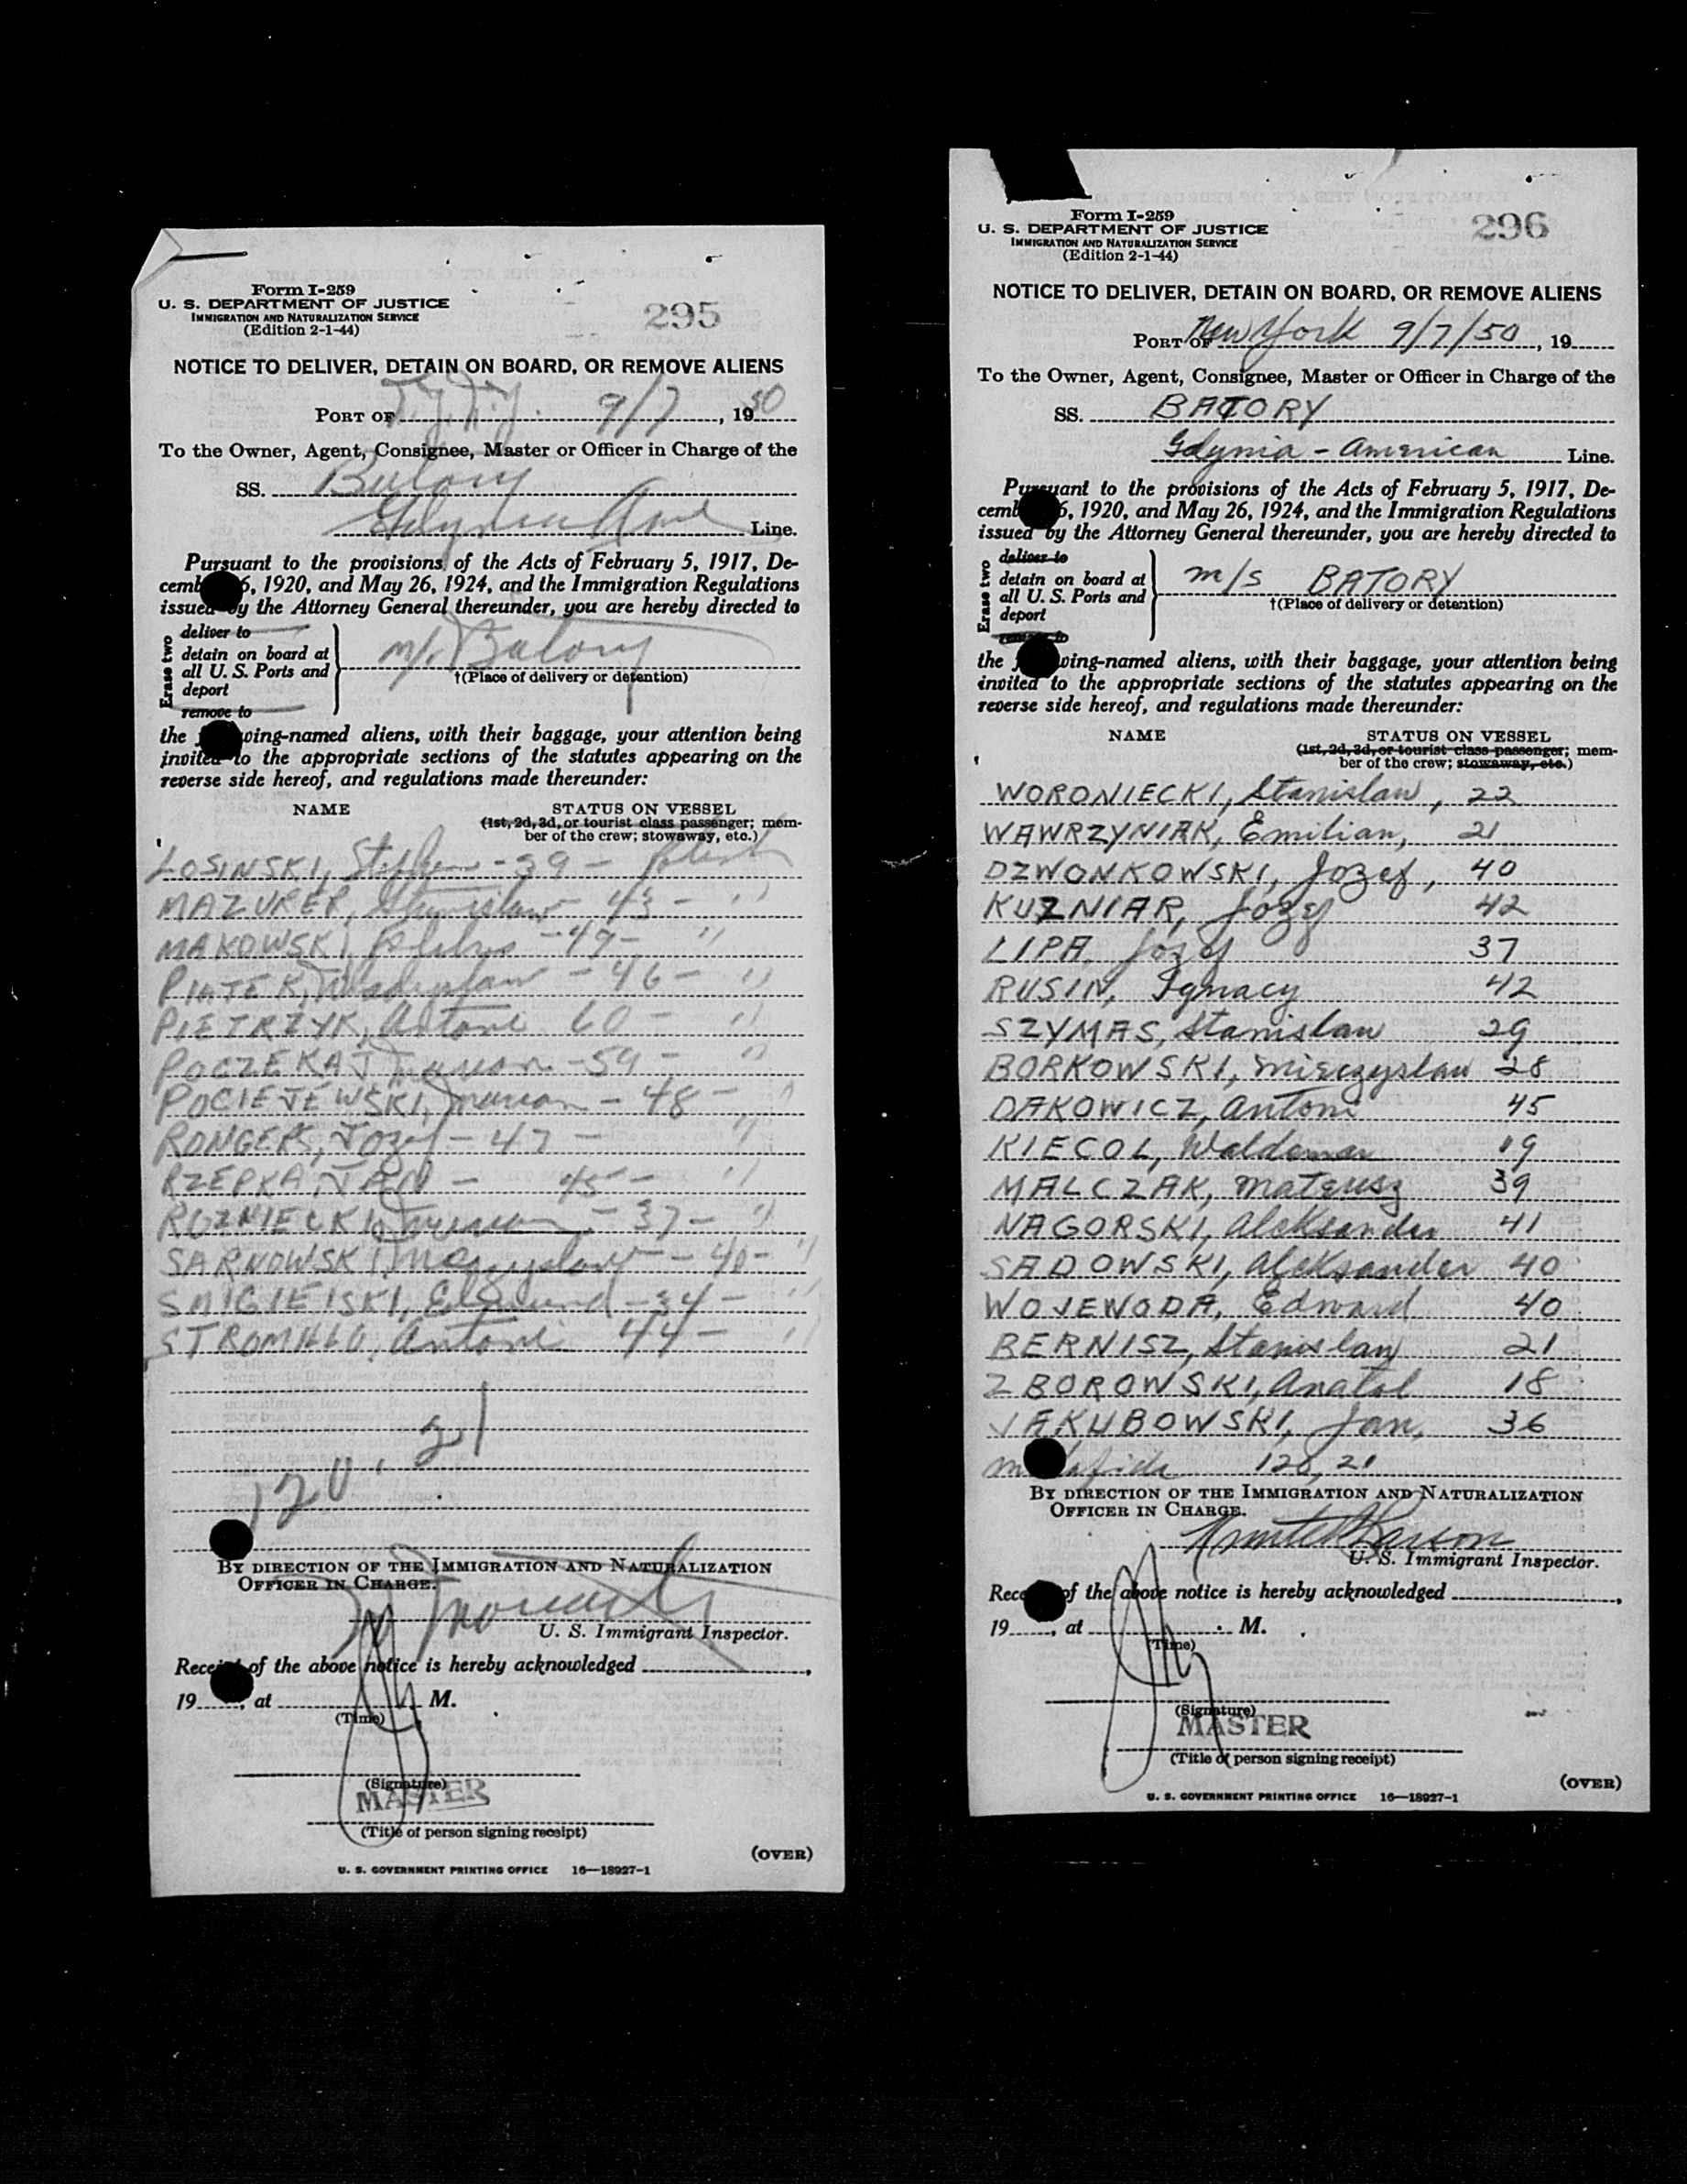 Form I-259
U. S. DEPARTMENT OF JUSTICE
IMMIGRATION AND NATURALIZATION SERVICE
(Edition 2-1-44)
295
NOTICE TO DELIVER, DETAIN ON BOARD, OR REMOVE ALIENS
PORT OF 9/7, 1950
To the Owner, Agent, Consignee, Master or Officer in Charge of the
SS. Batory
Gdynia Amer Line.
Pursuant to the provisions of the Acts of February 5, 1917, De-
cemb 6, 1920, and May 26, 1924, and the Immigration Regulations
issued by the Attorney General thereunder, you are hereby directed to
Erase two
deliver to
detain on board at
all U. S. Ports and
deport
remove to
m/s Batory
†(Place of delivery or detention)
the wing-named aliens, with their baggage, your attention being
invited to the appropriate sections of the statutes appearing on the
reverse side hereof, and regulations made thereunder:
NAME STATUS ON VESSEL
(1st, 2d, 3d, or tourist class passenger; mem-
ber of the crew; stowaway, etc.)
LOSINSKI, Stefan - 39 - Polish
MAZUREK, Stanislaw - 43 - "
MAKOWSKI, - 49 - "
PIATEK, Wladyslaw - 46 - "
PIETRZYK, Antoni 60 - "
POCZEKAJ, Marian - 59 - "
POCIEJEWSKI, Marian - 48 - "
RONGERS, Jozef - 47 - "
RZEPKA, JAN - 45 - "
ROZNIECKI, Marian - 37 - "
SARNOWSKI, - 40 - "
SMIGIELSKI, Edmund - 34 - "
STROMILLO, Antoni 44 - "
120. 21
BY DIRECTION OF THE IMMIGRATION AND NATURALIZATION
OFFICER IN CHARGE.
U. S. Immigrant Inspector.
Receipt of the above notice is hereby acknowledged ,
19 , at M.
(Time)
(Signature)
MASTER
(Title of person signing receipt)
(OVER)
U. S. GOVERNMENT PRINTING OFFICE 16—18927-1
Form I-259
U. S. DEPARTMENT OF JUSTICE
IMMIGRATION AND NATURALIZATION SERVICE
(Edition 2-1-44)
296
NOTICE TO DELIVER, DETAIN ON BOARD, OR REMOVE ALIENS
PORT OF New York 9/7/50, 19
To the Owner, Agent, Consignee, Master or Officer in Charge of the
SS. BATORY
Gdynia - American Line.
Pursuant to the provisions of the Acts of February 5, 1917, De-
cemb 6, 1920, and May 26, 1924, and the Immigration Regulations
issued by the Attorney General thereunder, you are hereby directed to
Erase two
deliver to
detain on board at
all U. S. Ports and
deport
remove to
m/s BATORY
†(Place of delivery or detention)
the wing-named aliens, with their baggage, your attention being
invited to the appropriate sections of the statutes appearing on the
reverse side hereof, and regulations made thereunder:
NAME STATUS ON VESSEL
(1st, 2d, 3d, or tourist class passenger; mem-
ber of the crew; stowaway, etc.)
WORONIECKI, Stanislaw, 22
WAWRZYNIAK, Emilian, 21
DZWONKOWSKI, Jozef, 40
KUZNIAR, Jozef 42
LIPA, Jozef 37
RUSIN, Ignacy 42
SZYMAS, Stanislaw 29
BORKOWSKI, Mieczyslaw 28
DAKOWICZ, Antoni 45
KIECOL, Waldemar 19
MALCZAK, Mateusz 39
NAGORSKI, Aleksander 41
SADOWSKI, Aleksander 40
WOJEWODA, Edward 40
BERNISZ, Stanislaw 21
ZBOROWSKI, Anatol 18
JAKUBOWSKI, Jan, 36
120, 21
BY DIRECTION OF THE IMMIGRATION AND NATURALIZATION
OFFICER IN CHARGE.
U. S. Immigrant Inspector.
Rece of the above notice is hereby acknowledged ,
19 , at M.
(Time)
(Signature)
MASTER
(Title of person signing receipt)
(OVER)
U. S. GOVERNMENT PRINTING OFFICE 16—18927-1